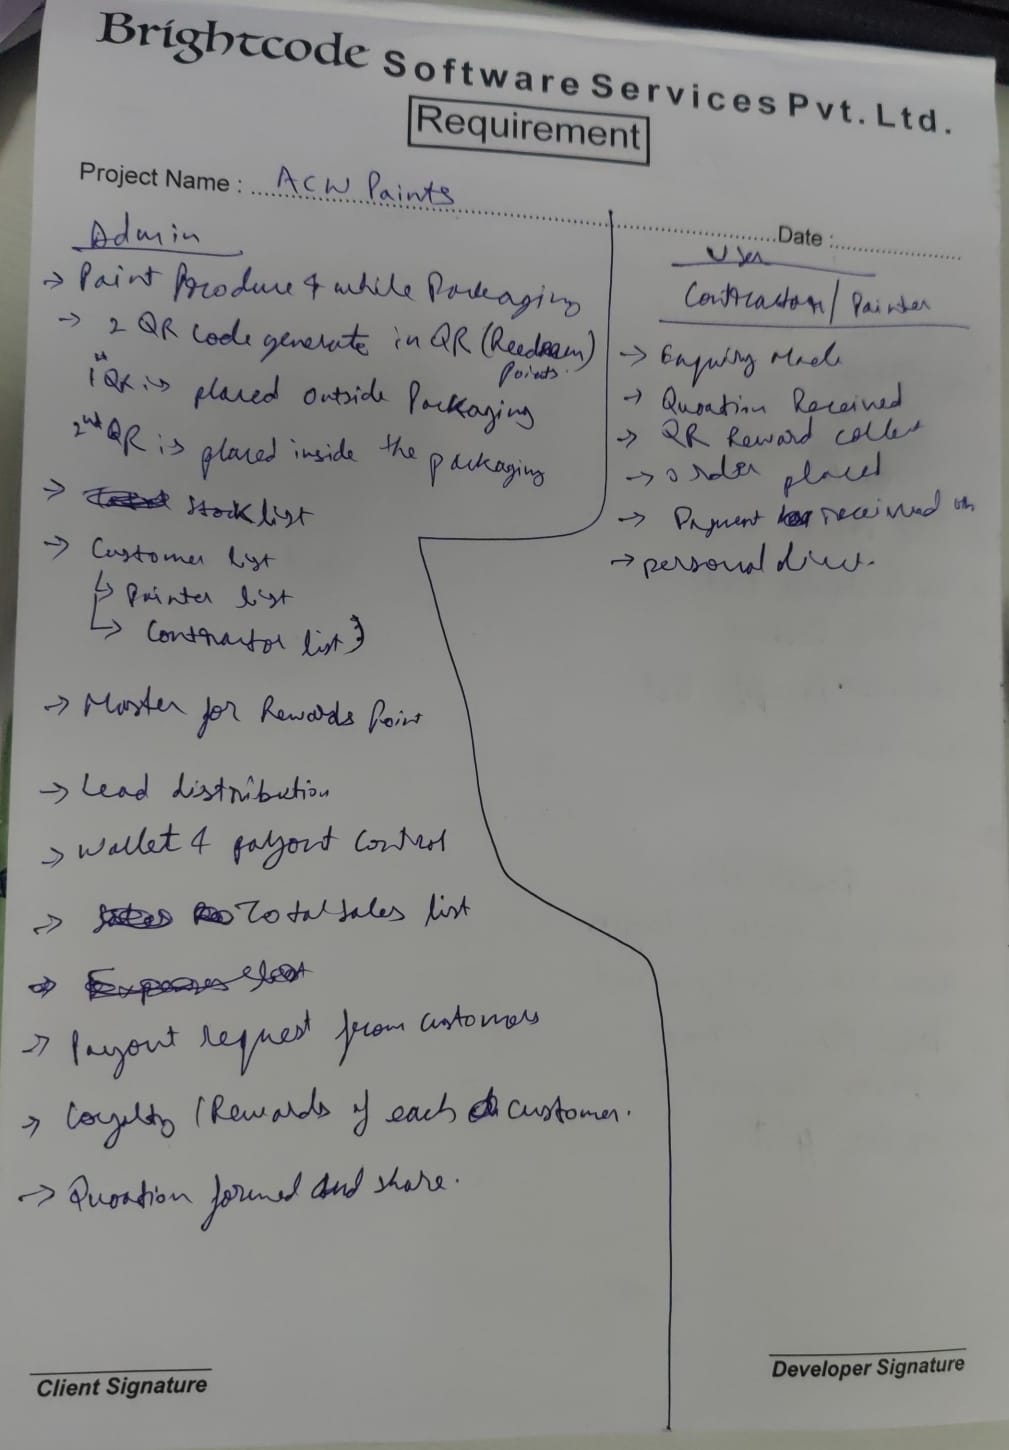 Brightcode Software Services Pvt. Ltd.
Requirement
Project Name : ACW Paints
Date :
Admin
→ Paint Produce & while Packaging
→ 2 QR Code generate in QR (Reedeem Points)
1st QR is placed outside Packaging
2nd QR is placed inside the packaging
→ Stock list
→ Customer list
↳ Painter list
↳ Contractor list
→ Master for Rewards Point
→ Lead distribution
→ Wallet & payout control
→ Total sales list
→ Payout request from customers
→ Loyalty / Rewards of each customer.
→ Quoation formed and share.
User
Contractor / Painter
→ Enquiry Made
→ Quoation Received
→ QR Reward collect
→ order placed
→ Payment received
→ personal
Client Signature
Developer Signature